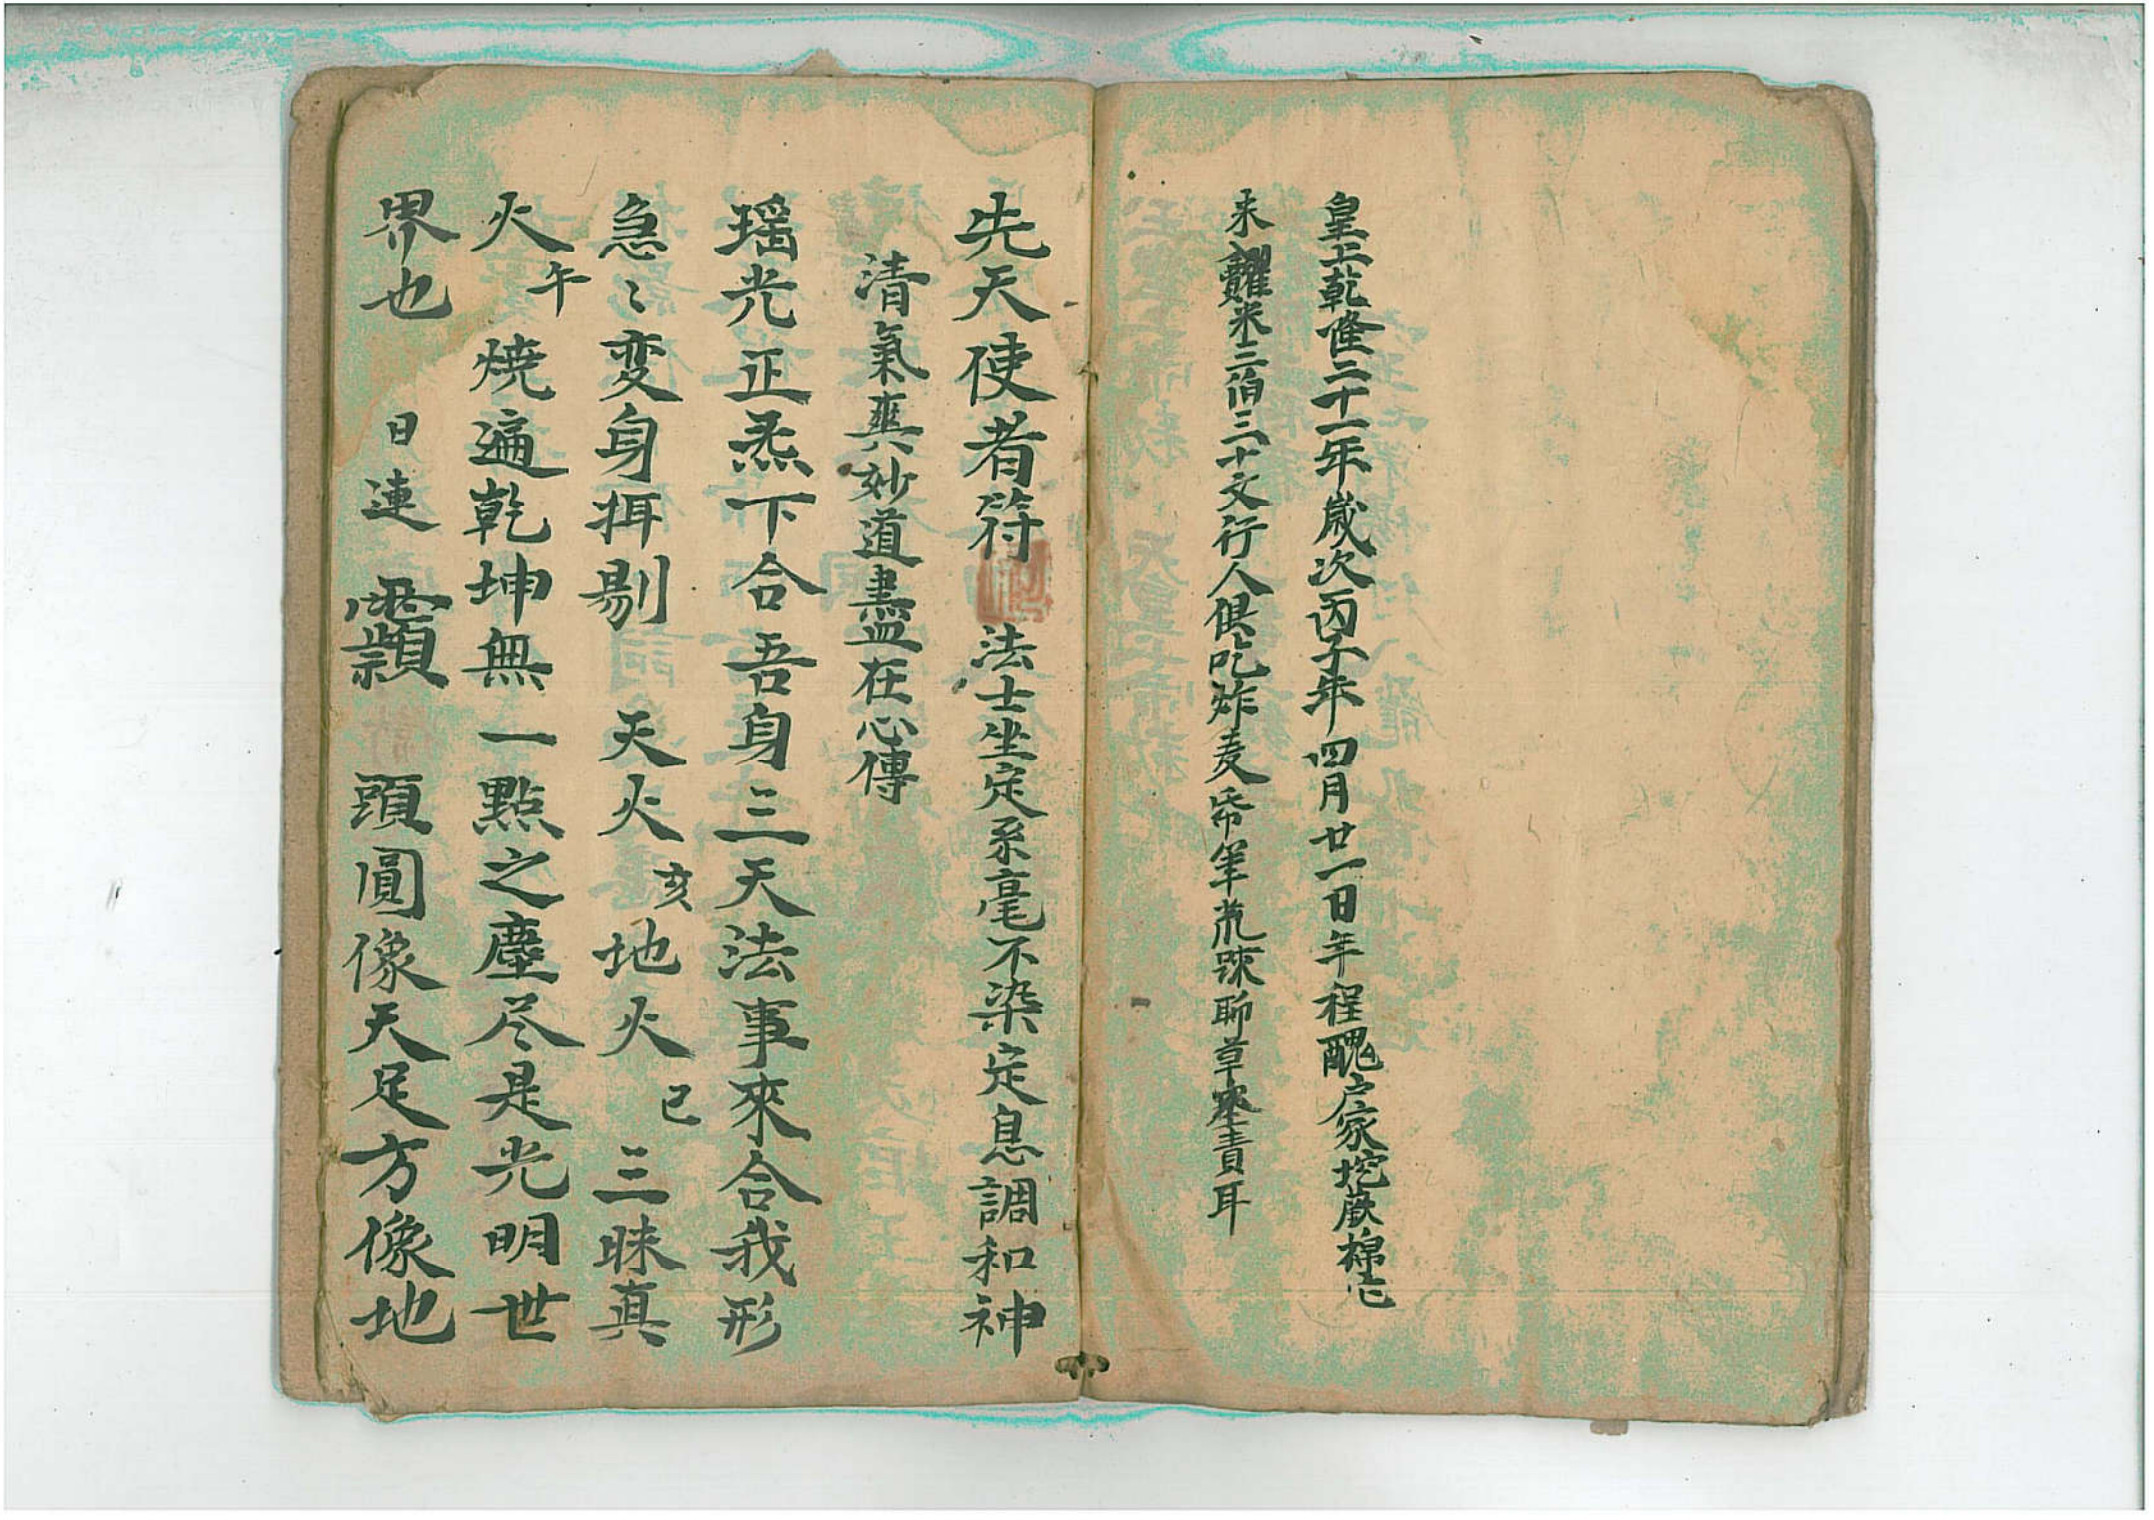 皇上乾隆二十一年歲次丙子年四月廿一日年程醜戶家挖蕨棉
來糴米三伯三十文行人俱吃炸麦帋筆荒踈聊草塞責耳
先天使者符 法士坐定系毫不染定息調和神
清氣爽妙道盡在心傳
瑶光正炁下合吾身三天法事來合我形
急〻变身挕剔 天火亥地火巳 三昧真
火午燒遍乾坤無一點之塵尽是光明世
界也 日連 頭圓像天足方像地